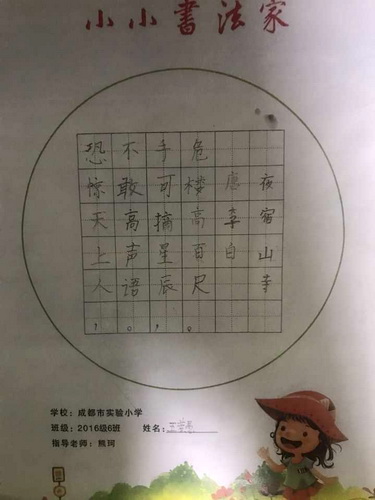 小小書法家
夜宿山寺
唐李白
危楼高百尺。
手可摘星辰，
不敢高声语。
恐惊天上人，
学校：成都市实验小学
班级：2016级6班
姓名：
指导老师：熊珂